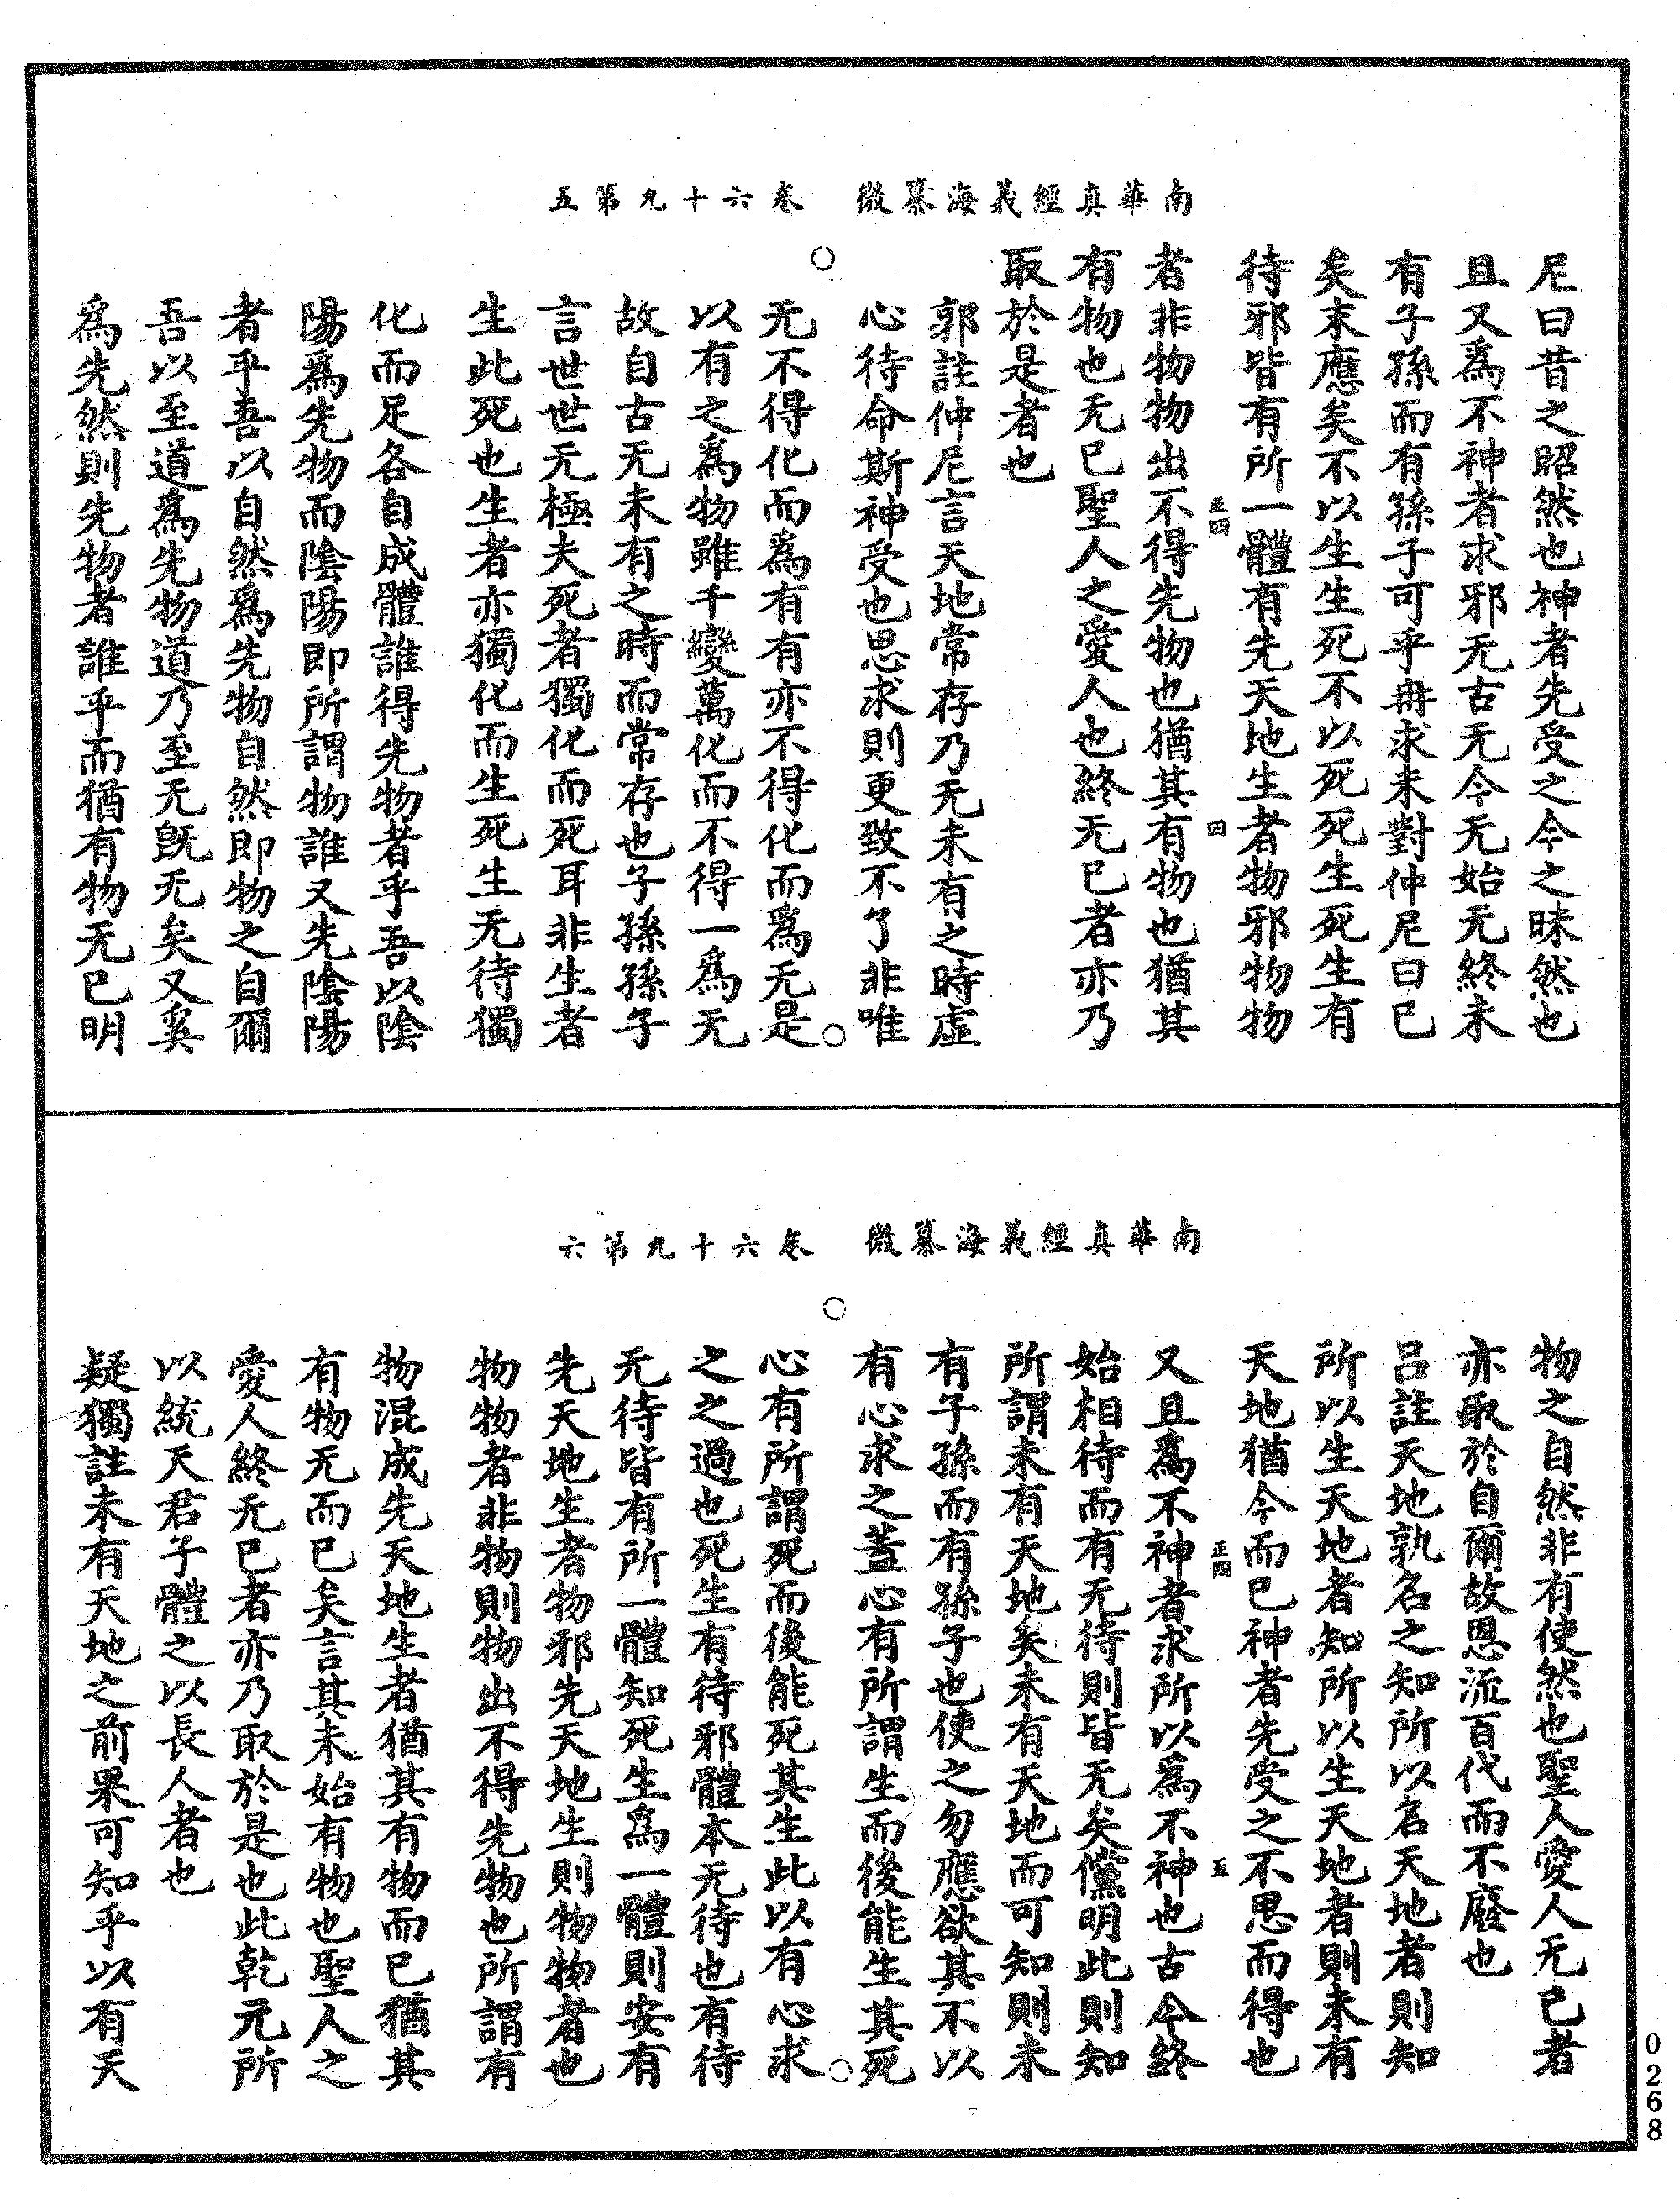 南華真經義海纂微　卷六十九第五
尼曰昔之昭然也神者先受之今之昧然也
且又爲不神者求邪无古无今无始无終未
有子孫而有孫子可乎冉求未對仲尼曰已
矣末應矣不以生生死不以死死生死生有
待邪皆有所一體有先天地生者物邪物物
者非物物出不得先物也猶其有物也猶其
有物也无已聖人之愛人也終无已者亦乃
取於是者也
郭註仲尼言天地常存乃无未有之時虛
心待命斯神受也思求則更致不了非唯
无不得化而爲有有亦不得化而爲无是
以有之爲物雖千變萬化而不得一爲无
故自古无未有之時而常存也子孫孫子
言世世无極夫死者獨化而死耳非生者
生此死也生者亦獨化而生死生无待獨
化而足各自成體誰得先物者乎吾以陰
陽爲先物而陰陽即所謂物誰又先陰陽
者乎吾以自然爲先物自然即物之自爾
吾以至道爲先物道乃至无旣无矣又奚
爲先然則先物者誰乎而猶有物无已明
南華真經義海纂微　卷六十九第六
物之自然非有使然也聖人愛人无已者
亦取於自爾故恩流百代而不廢也
呂註天地孰名之知所以名天地者則知
所以生天地者知所以生天地者則未有
天地猶今而已神者先受之不思而得也
又且爲不神者求所以爲不神也古今終
始相待而有无待則皆无矣儻明此則知
所謂未有天地矣未有天地而可知則未
有子孫而有孫子也使之勿應欲其不以
有心求之蓋心有所謂生而後能生其死
心有所謂死而後能死其生此以有心求
之之過也死生有待邪體本无待也有待
无待皆有所一體知死生爲一體則安有
先天地生者物邪先天地生則物物者也
物物者非物則物出不得先物也所謂有
物混成先天地生者猶其有物而已猶其
有物无而已矣言其未始有物也聖人之
愛人終无已者亦乃取於是也此乾元所
以統天君子體之以長人者也
疑獨註未有天地之前果可知乎以有天
0268